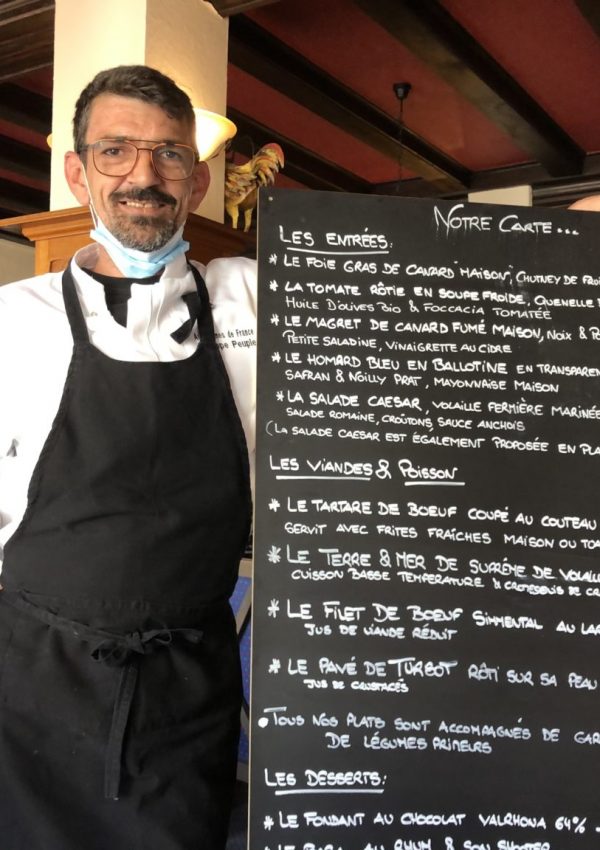 Notre Carte...
Les entrées:
* Le foie gras de canard "maison", Chutney de
* La tomate rôtie en soupe froide, Quenelle
Huile d'olives bio & Foccacia tomatée
* Le magret de canard fumé maison, Noix &
Petite saladine, vinaigrette au cidre
* Le homard bleu en ballotine en
Safran & Noilly Prat, mayonnaise maison
* La salade Caesar, volaille fermière
Salade romaine, croûtons, sauce anchois
(La salade Caesar est également proposée en
Les viandes & Poisson
* Le tartare de boeuf coupé au couteau
servit avec frites fraîches maison ou
* Le Terre & Mer de suprême de
cuisson basse température &
* Le Filet de Boeuf Simmental au
jus de viande réduit
* Le pavé de Turbot rôti sur sa peau
jus de crustacés
• Tous nos plats sont accompagnés de
de légumes primeurs
Les desserts:
* Le fondant au chocolat Valrhona 64%
au rhum & son
de France